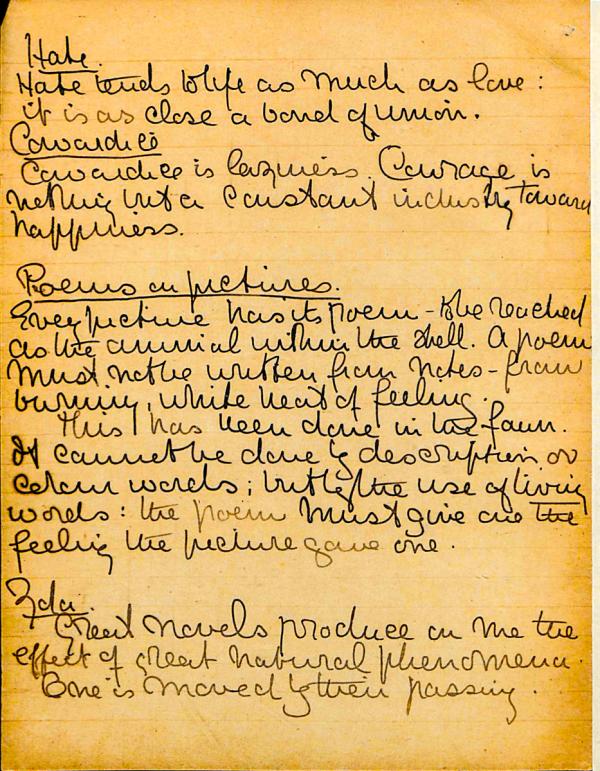 Hate.
Hate tends to life as much as love:
it is as close a bond of union.
Cowardice
Cowardice is laziness. Courage is
nothing but a constant industry toward
happiness.
Poems on pictures.
Every picture has its poem - to be reached
as the animal within the shell. A poem
must not be written from notes - from
burning, white heat of feeling.
This has been done in the faun.
It cannot be done by description or
colour words; but by the use of living
words: the poem must give one the
feeling the picture gave one.
Zola.
Great novels produce on me the
effect of great natural phenomena.
One is moved by their passing.